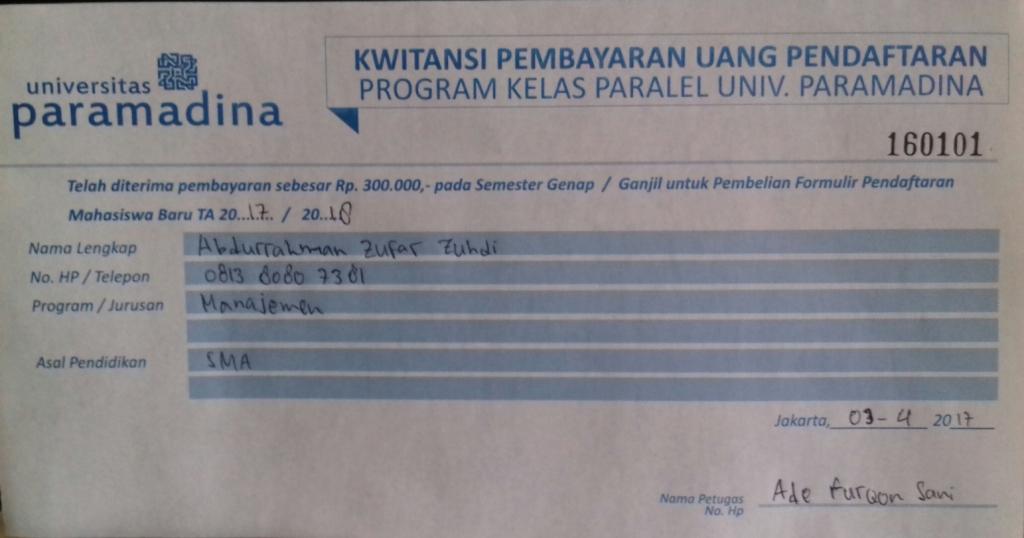 universitas
paramadina
KWITANSI PEMBAYARAN UANG PENDAFTARAN
PROGRAM KELAS PARALEL UNIV. PARAMADINA
160101
Telah diterima pembayaran sebesar Rp. 300.000,- pada Semester Genap / Ganjil untuk Pembelian Formulir Pendaftaran
Mahasiswa Baru TA 20..17.. / 20..18
Nama Lengkap Abdurrahman Zufar Zuhdi
No. HP / Telepon 0813 8080 7381
Program / Jurusan Manajemen
Asal Pendidikan SMA
Jakarta, 03-4 2017
Nama Petugas Ade Furqon Sani
No. Hp